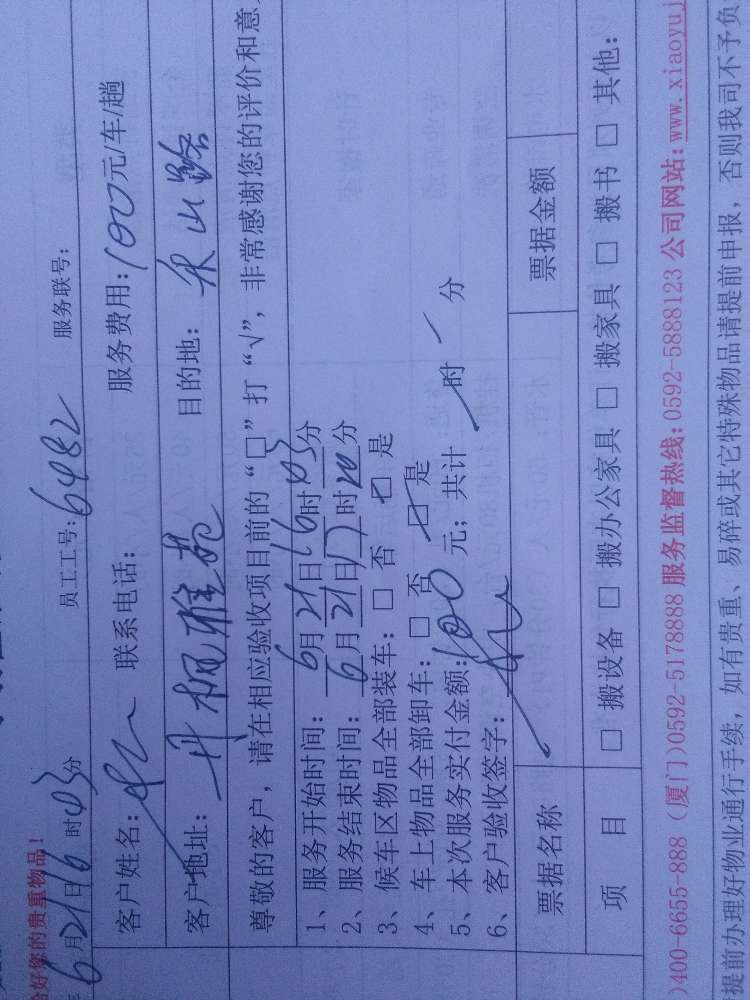 好您的贵重物品！
6月21日16时03分 员工工号：6482 服务联号：
客户姓名： 联系电话： 服务费用：100元/车/趟
客户地址：丹枫雅苑 目的地：禾山路
尊敬的客户，请在相应验收项目前的“□”打“√”，非常感谢您的评价和意
1、服务开始时间：6月21日16时03分
2、服务结束时间：6月21日17时20分
3、候车区物品全部装车：□否 ☑是
4、车上物品全部卸车：□否 ☑是
5、本次服务实付金额：100元；共计 时 分
6、客户验收签字：
票据名称 票据金额
项目 □搬设备 □搬办公家具 □搬家具 □搬书 □其他：
)400-6655-888（厦门)0592-5178888 服务监督热线:0592-5888123 公司网站:www.xiaoyuj
提前办理好物业通行手续，如有贵重、易碎或其它特殊物品请提前申报，否则我司不予负